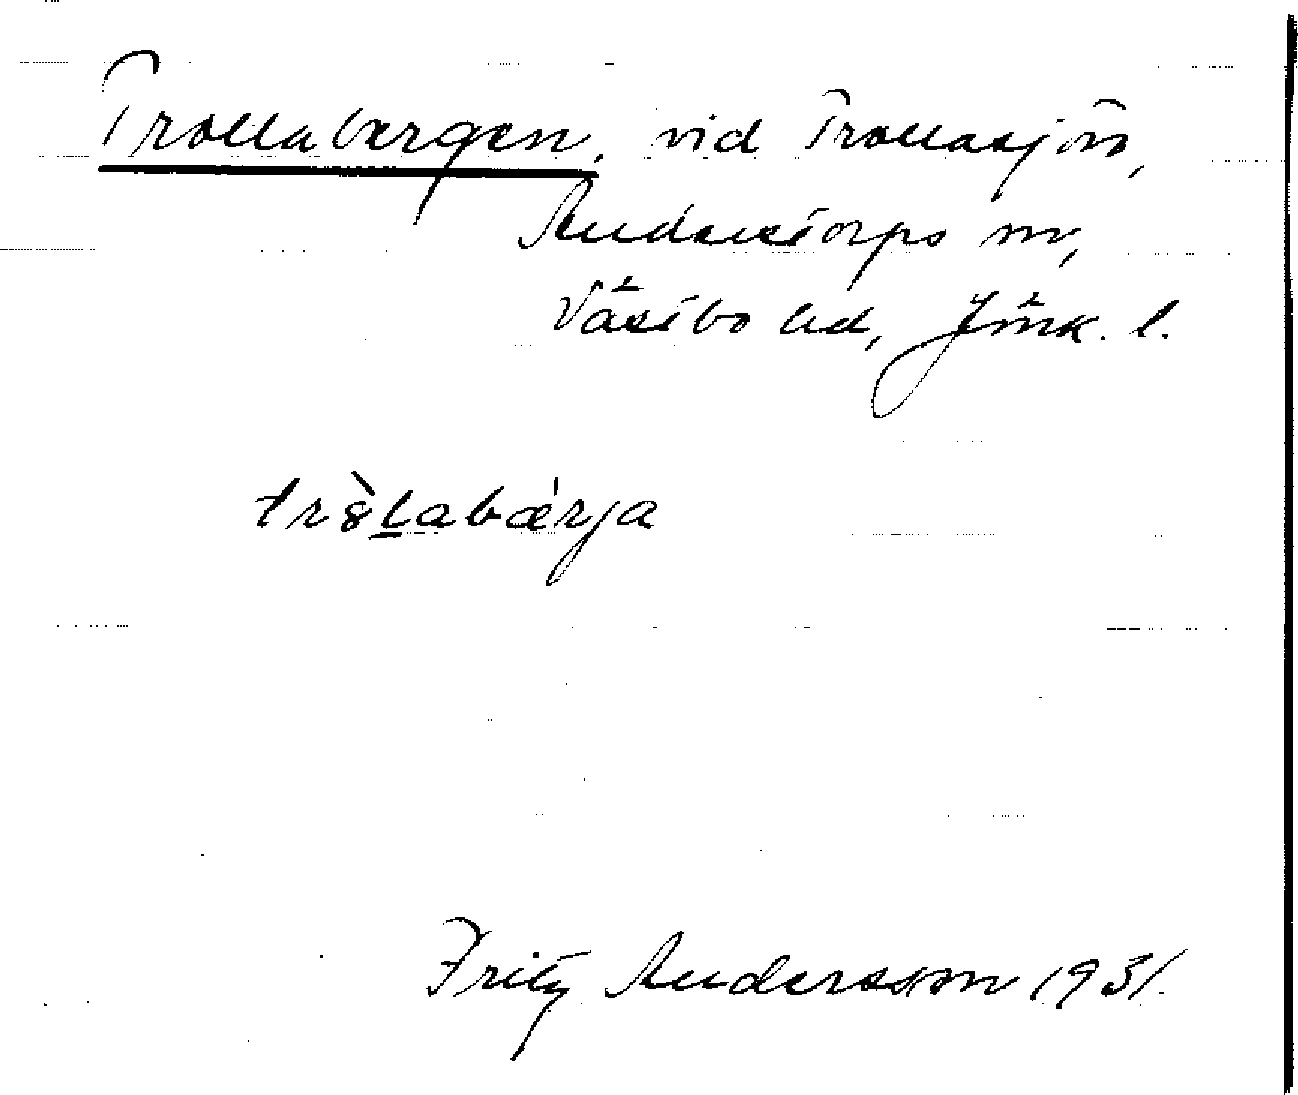 Trollabergen, vid Trollasjön,
Anderstorps sn,
Västbo hd, Jönk. l.
tr8̀Labæ̍rja
Fritz Andersson 1931.